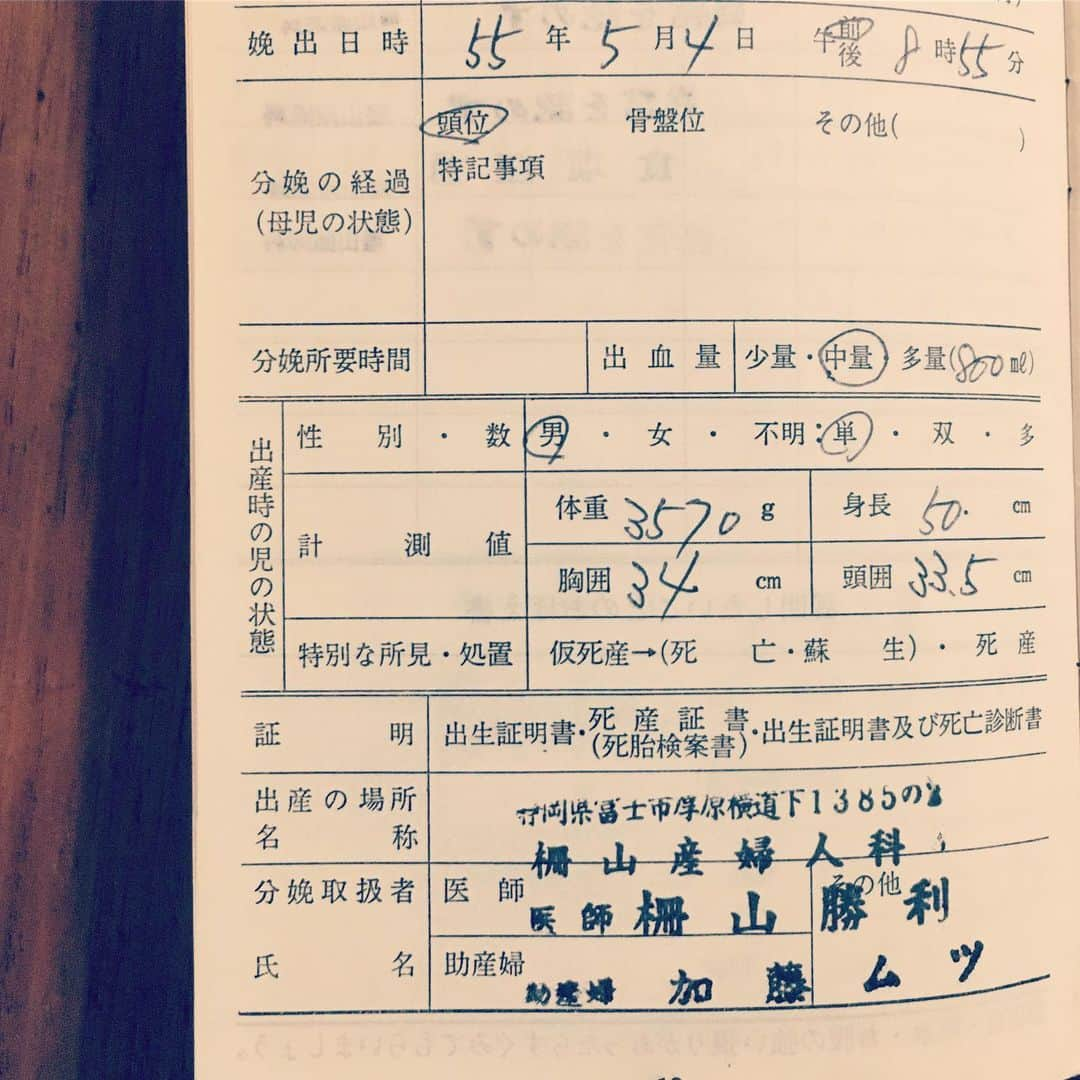 娩出日時 55年5月4日 午前後 8時55分
頭位 骨盤位 その他( )
分娩の経過
(母児の状態)
特記事項
分娩所要時間 出血量 少量・中量・多量(800ml)
出産時の児の状態
性別・数 男・女・不明:単・双・多
計測値
体重 3570 g 身長 50. cm
胸囲 34 cm 頭囲 33.5 cm
特別な所見・処置 仮死産→(死亡・蘇生)・死産
証明 出生証明書・死産証書(死胎検案書)・出生証明書及び死亡診断書
出産の場所
名称
静岡県富士市厚原横道下1385の
柵山産婦人科
分娩取扱者
氏名
医師 その他
医師 柵山勝利
助産婦
助産婦 加藤ムツ